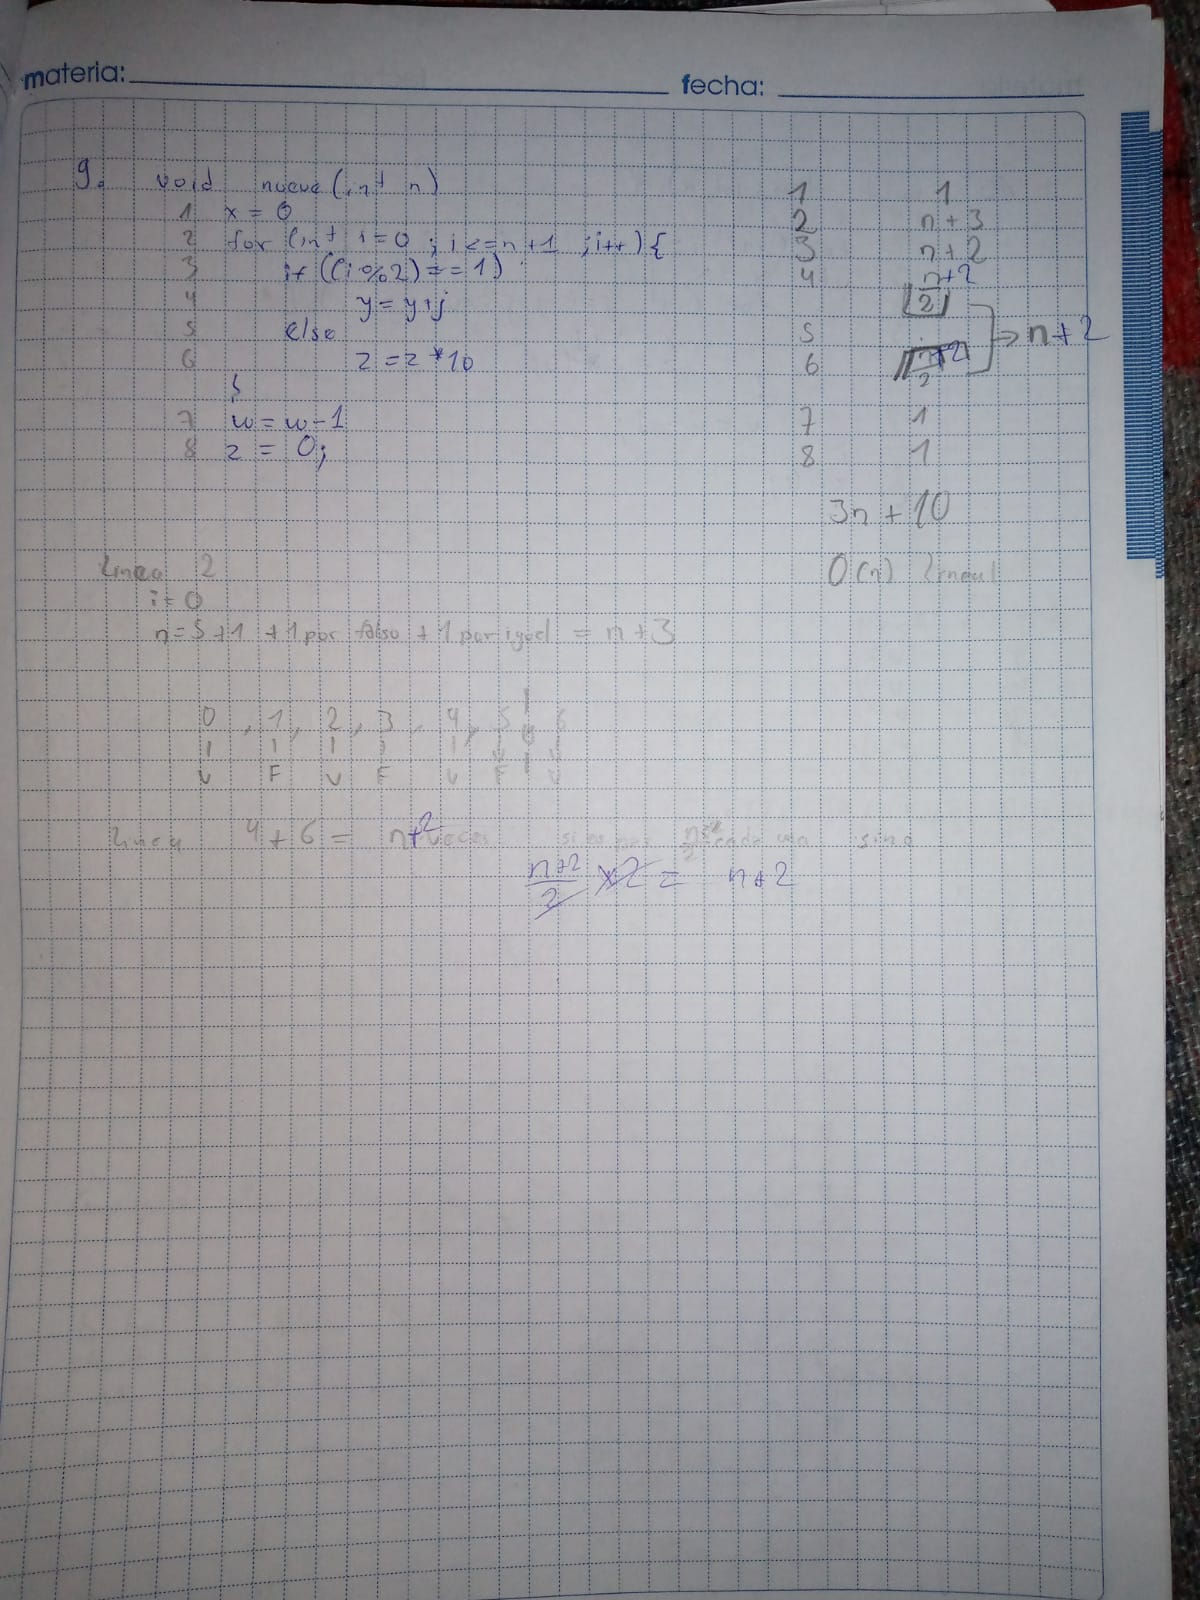 materia: fecha:
9. void nueve (int n)
1 x = 0
2 for (int i=0 ; i <= n+1 ; i++) {
3 if ((i%2) == 1)
4 y = y+j
5 else
6 z = z * 10
}
7 w = w-1
8 z = 0;
1 1
2 n+3
3 n+2
4 n+2
2
5
6 n+2
2
=> n+2
7 1
8 1
3n + 10
O(n) lineal
Linea 2
i= 0
n=5+1 +1 por falso +1 por igual = n+3
0 , 1 , 2 , 3 , 4 , 5 6
v F v F v F v
Linea 4+6 = n+2 veces si es par cada uno sino
n+2
2 x2 = n+2